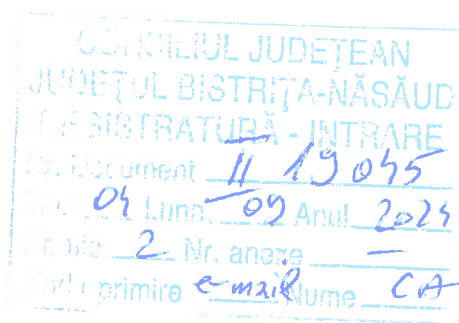 CONSILIUL JUDEȚEAN
JUDEȚUL BISTRIȚA-NĂSĂUD
REGISTRATURĂ - INTRARE
Document II 19045
04 Luna 09 Anul 2024
2 Nr. anexe —
primire e-mail Nume CA